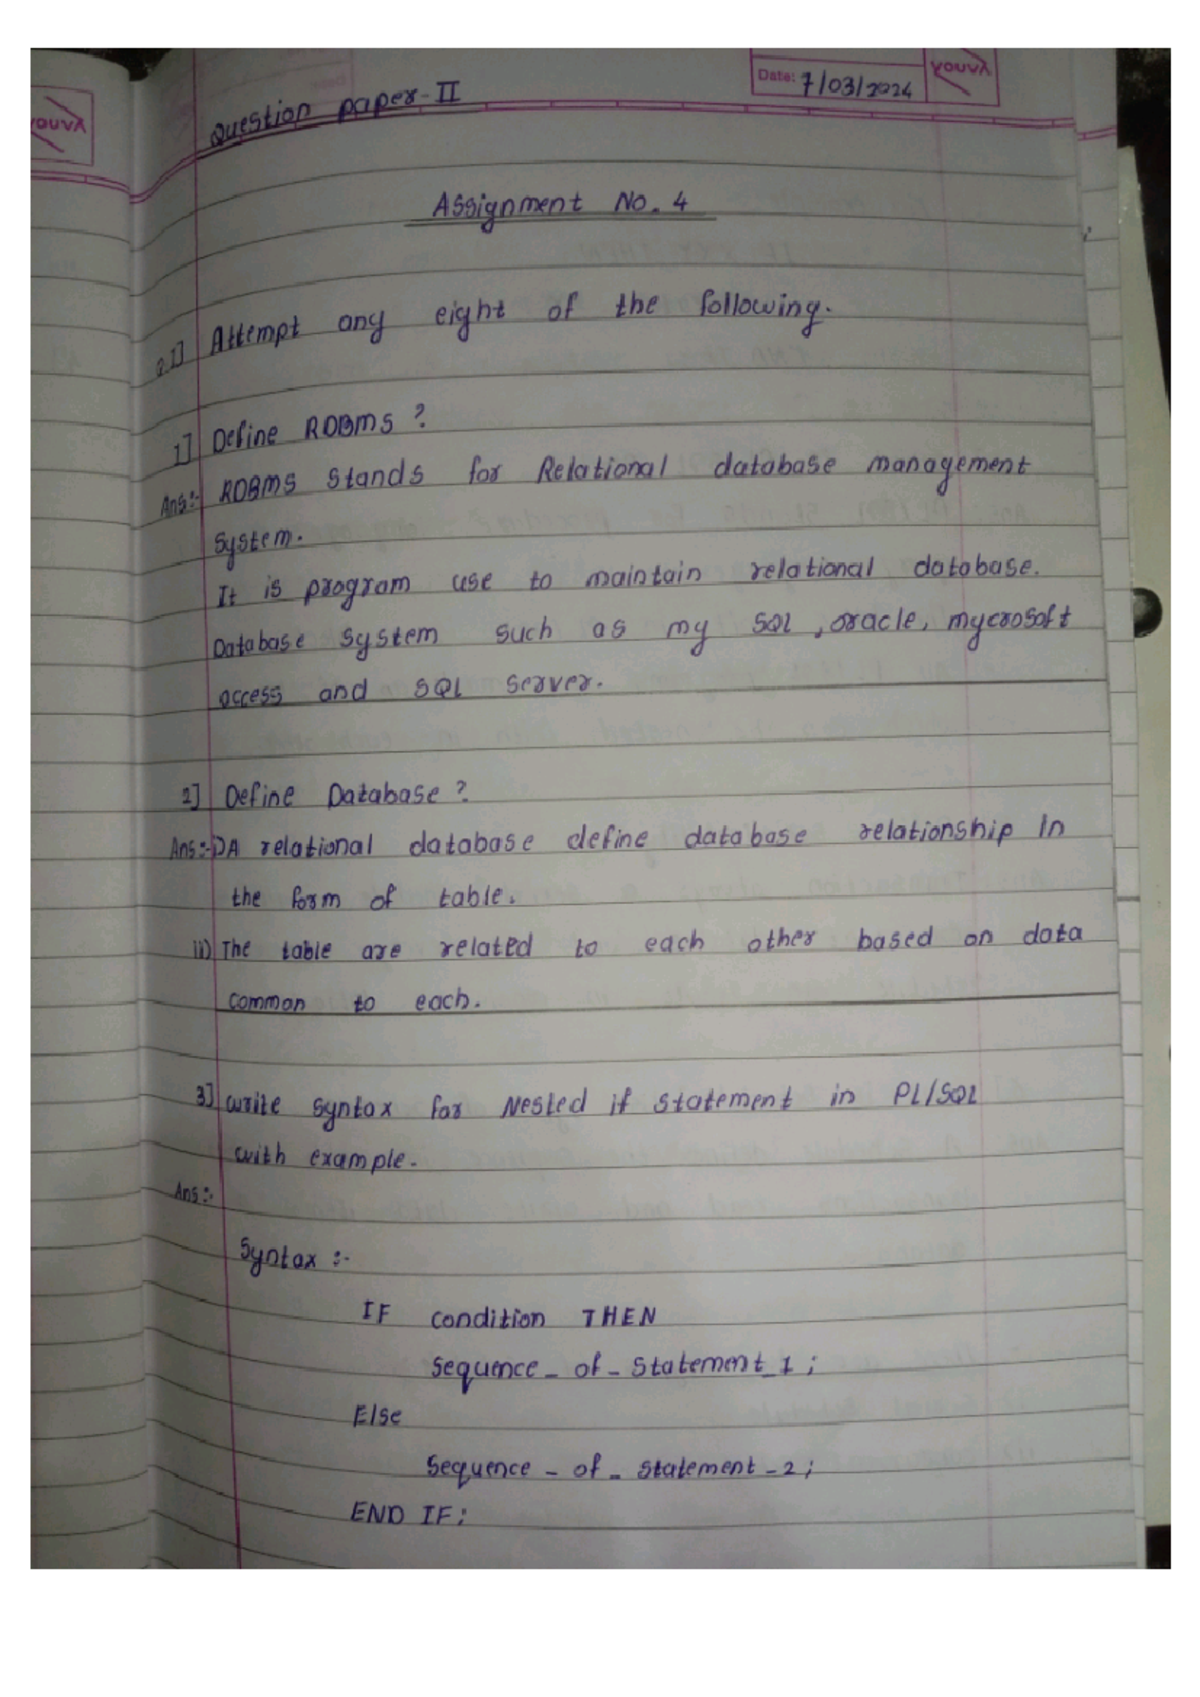 Question paper-II
Date: 7/03/2024
YOUVA
YOUVA
Assignment No. 4
Q.1] Attempt any eight of the following.
1] Define RDBMS ?
Ans:- RDBMS stands for Relational database management
system.
It is program use to maintain relational database.
Database system such as my SQL, oracle, mycrosoft
access and SQL server.
2] Define Database ?
Ans:- i) A relational database define database relationship in
the form of table.
ii) The table are related to each other based on data
common to each.
3] write syntax for Nested if statement in PL/SQL
with example.
Ans:-
Syntax :-
IF condition THEN
Sequence_of_statement_1;
Else
Sequence_of_statement_2;
END IF;